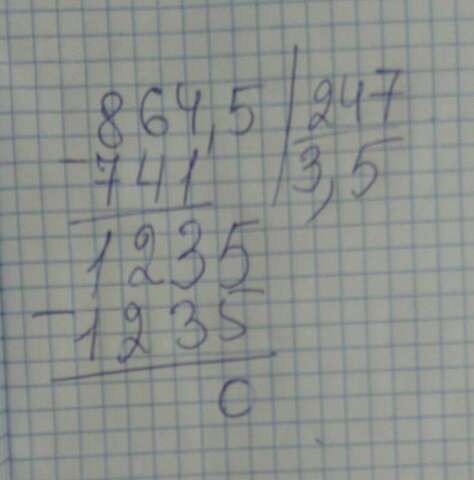 864,5 | 247
- 741 | 3,5
1235
- 1235
0